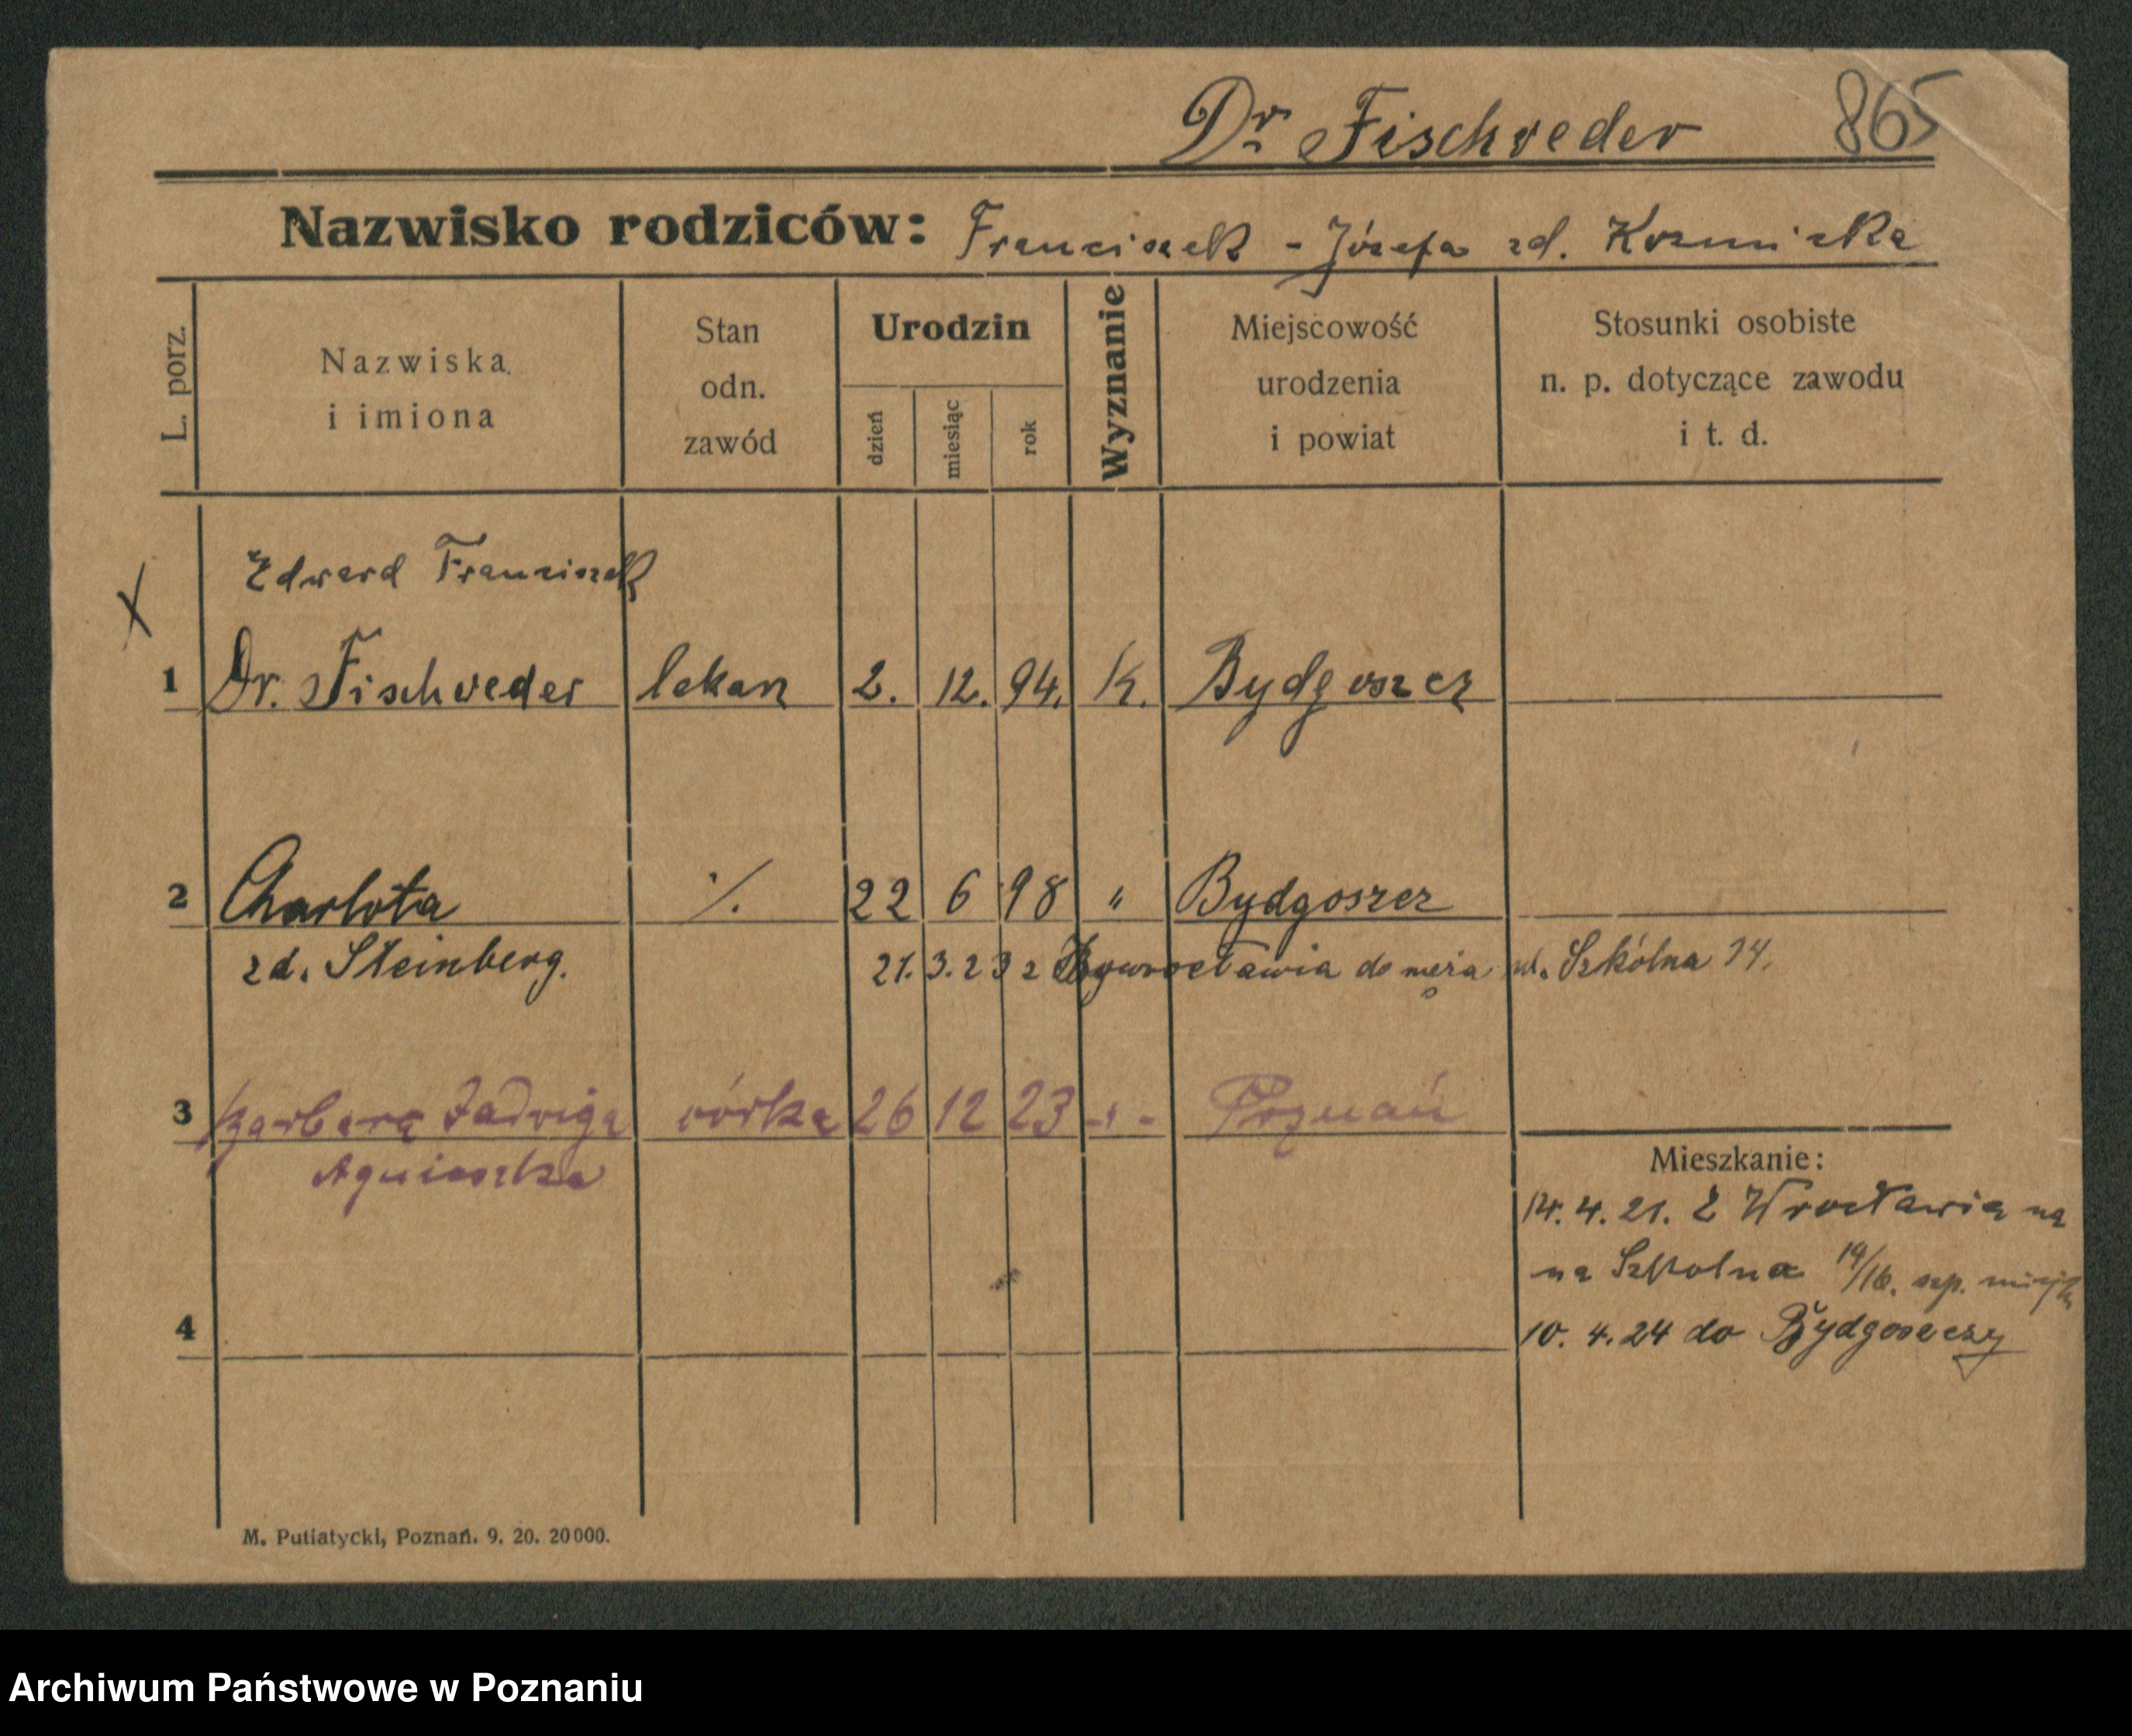 Dr. Fischoeder 865
Nazwisko rodziców: Franciszek - Józefa zd. Kozmicka
L. porz.
Nazwiska
i imiona
Stan
odn.
zawód
Urodzin
dzień
miesiąc
rok
Wyznanie
Miejscowość
urodzenia
i powiat
Stosunki osobiste
n. p. dotyczące zawodu
i t. d.
X
Edward Franciszek
1 Dr. Fischoeder lekarz 2. 12. 94. K. Bydgoszcz
2 Charlota ./. 22 6 98 " Bydgoszcz
zd. Steinberg. 21.3.23 z Inowrocławia do męża ul. Szkólna 14.
3 Barbara Jadwiga córka 26 12 23 -"- Poznań
Agnieszka
Mieszkanie:
14. 4. 21. z Wrocławia na
na Szkolna 14/16. szp. miejsk
4 10. 4. 24 do Bydgoszczy
M. Putiatycki, Poznań. 9. 20. 20000.
Archiwum Państwowe w Poznaniu